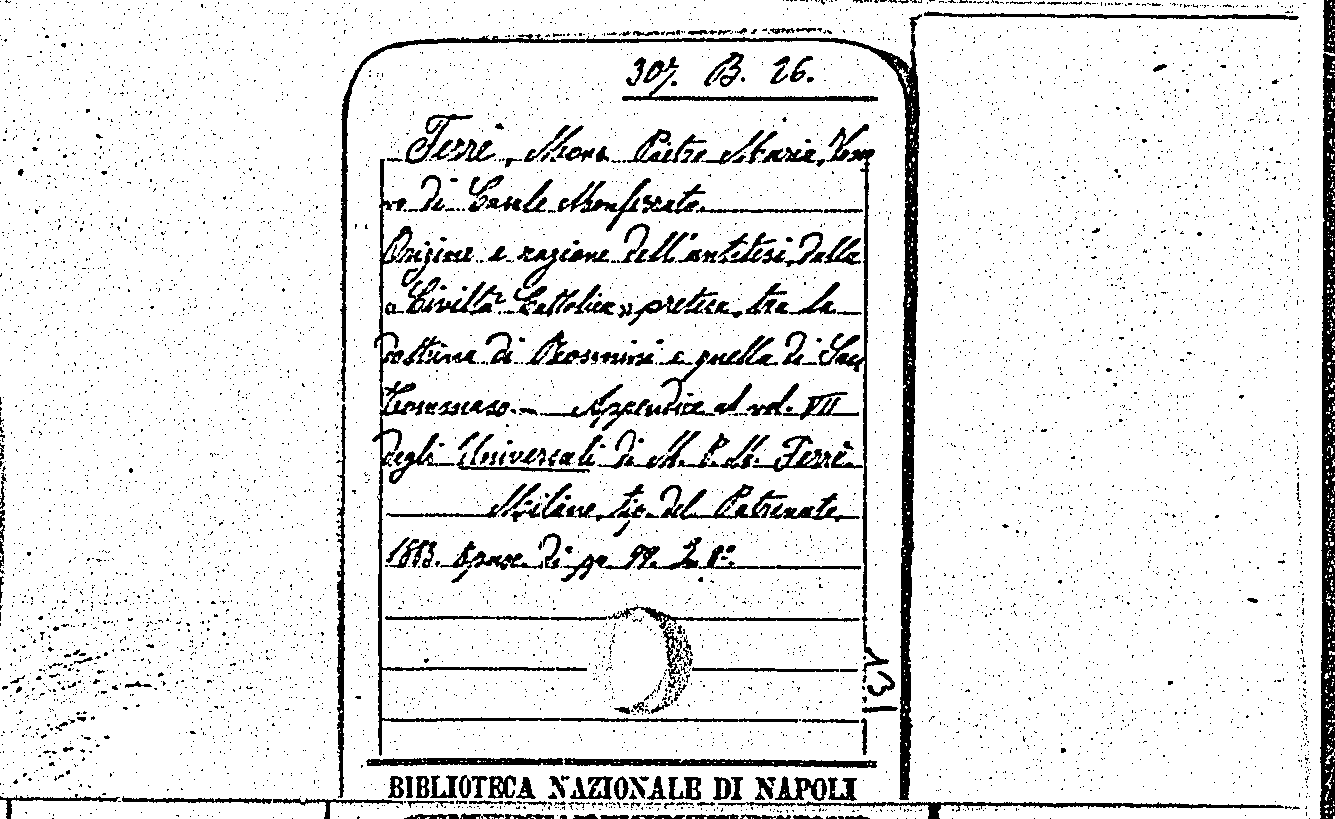 307. B. 26.
Ferrè, Mons. Pietro Maria, Vesco
vo di Casale Monferrato.
Origine e ragione dell'antitesi, dalla
« Civiltà Cattolica » pretesa, tra la
dottrina di Rosmini e quella di San
Tommaso. — Appendice al vol. VII
degli Universali di M. P. M. Ferrè.
Milano, tip. del Patronato,
opusc. di pp. 99. In 8°.
132
BIBLIOTECA NAZIONALE DI NAPOLI